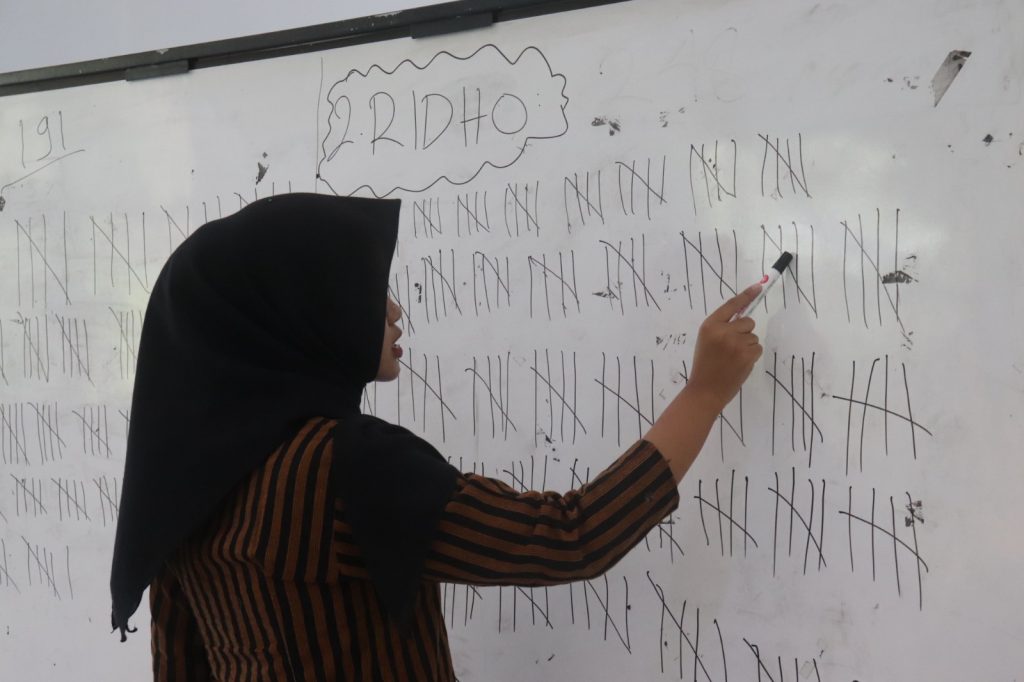 191
2. RIDHO